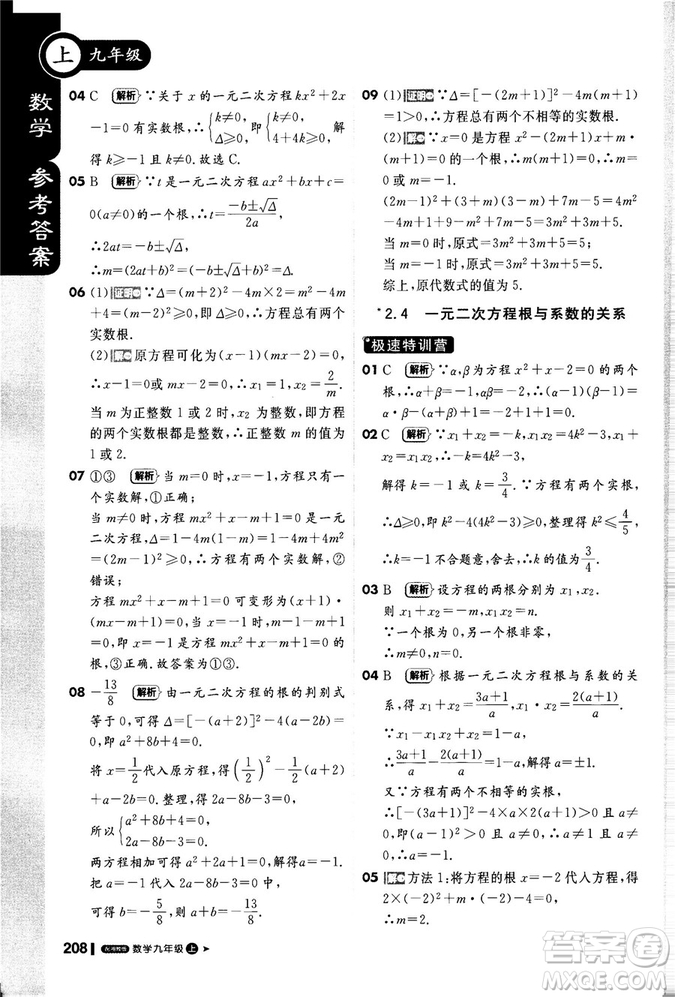 上 九年级
数学 参考答案
04 C 解析 ∵关于 x 的一元二次方程 kx²+2x
-1=0 有实数根,∴{k≠0, Δ≥0, 即{k≠0, 4+4k≥0. 解
得 k≥-1 且 k≠0. 故选 C.
05 B 解析 ∵t 是一元二次方程 ax²+bx+c=
0(a≠0)的一个根,∴t=(-b±√Δ)/2a,
∴2at=-b±√Δ,
∴m=(2at+b)²=(-b±√Δ+b)²=Δ.
06 (1)证明 ∵Δ=(m+2)²-4m×2=m²-4m
+4=(m-2)²≥0,∴方程总有两个实
数根.
(2)解 原方程可化为(x-1)(mx-2)=0,
∴x-1=0 或 mx-2=0,∴x₁=1,x₂=2/m.
当 m 为正整数 1 或 2 时,x₂ 为整数,即方程
的两个实数根都是整数,∴正整数 m 的值为
1 或 2.
07 ①③ 解析 当 m=0 时,x=-1,方程只有
一个实数解,①正确;
当 m≠0 时,方程 mx²+x-m+1=0 是一元
二次方程,Δ=1-4m(1-m)=1-4m+4m²
=(2m-1)²≥0,∴方程有两个实数解,②
错误;
方程 mx²+x-m+1=0 可化为(x+1)·
(mx-m+1)=0,当 x=-1 时,m-1-m+1
=0,即 x=-1 是方程 mx²+x-m+1=0
的根,③正确.故答案为①③.
08 -13/8 解析 由一元二次方程的根的判别式
等于 0,可得 Δ=[-(a+2)]²-4(a-2b)=
0,整理,可得 a²+8b+4=0.
将 x=1/2 代入原方程,得(1/2)²-1/2(a+2)+
a-2b=0,整理,得 2a-8b-3=0.
所以{a²+8b+4=0, 2a-8b-3=0.
两方程相加可得 a²+2a+1=0,解得 a=-1.
把 a=-1 代入 2a-8b-3=0
可得 b=-5/8,则 a+b=-13/8.
208 数学九年级 上
09 (1)证明 ∵Δ=[-(2m+1)]²-4m(m+1)=
1>0,∴方程总有两个不相等的实数根.
(2)解 ∵x=0 是此方程的一个根,∴m·
(m+1)=0,
∴m=0 或 m=-1.
(2m-1)²+(3+m)(3-m)+7m-5=
4m²-4m+1+9-m²+7m-5=3m²+3m+5.
当 m=0 时,原式=3m²+3m+5=5;
当 m=-1 时,原式=3m²+3m+5=5.
综上,原代数式的值为 5.
*2.4 一元二次方程根与系数的关系
极速特训营
01 C 解析 ∵α,β为方程 x²+2x=0 的两个
根,∴α+β=-2,α·β=0,∴(α+β)+
α·β=-2+0=-2.
02 C 解析 ∵x₁+x₂=x₁x₂=4k²-3,x₁+x₂
=k,∴4k²-3=k.
解得 k=3/4 或 k=-1.∵方程有两个实根,
∴Δ≥0,即 k²-4(4k²-3)≥0,整理得 k²≤4/5,
∴k=-1 不合题意,舍去.∴k 的值为 3/4.
03 B 解析 设方程的两根分别为 x₁,x₂.
则 x₁+x₂=-m,x₁x₂=n.
∵一个根为 0,另一根非零,
∴m≠0,n=0.
04 B 解析 根据一元二次方程根与系数的关
系,得 x₁+x₂=(3a+1)/a,x₁x₂=2(a+1)/a.
∵x₁-x₁x₂+x₂=1-a,
∴(3a+1)/a-2(a+1)/a=1-a,解得 a=±1.
又∵方程有两个不相等的实根,
∴[-(3a+1)]²-4×a×2(a+1)>0,a≠
0,即(a-1)²>0,a≠0,∴a≠1,∴a=-1.
05 解 方法 1:将方程的根 x=-2 代入方程,得
2×(-2)²-5×(-2)+k=0,解得 k=-18.
答案圈
MXQE.COM